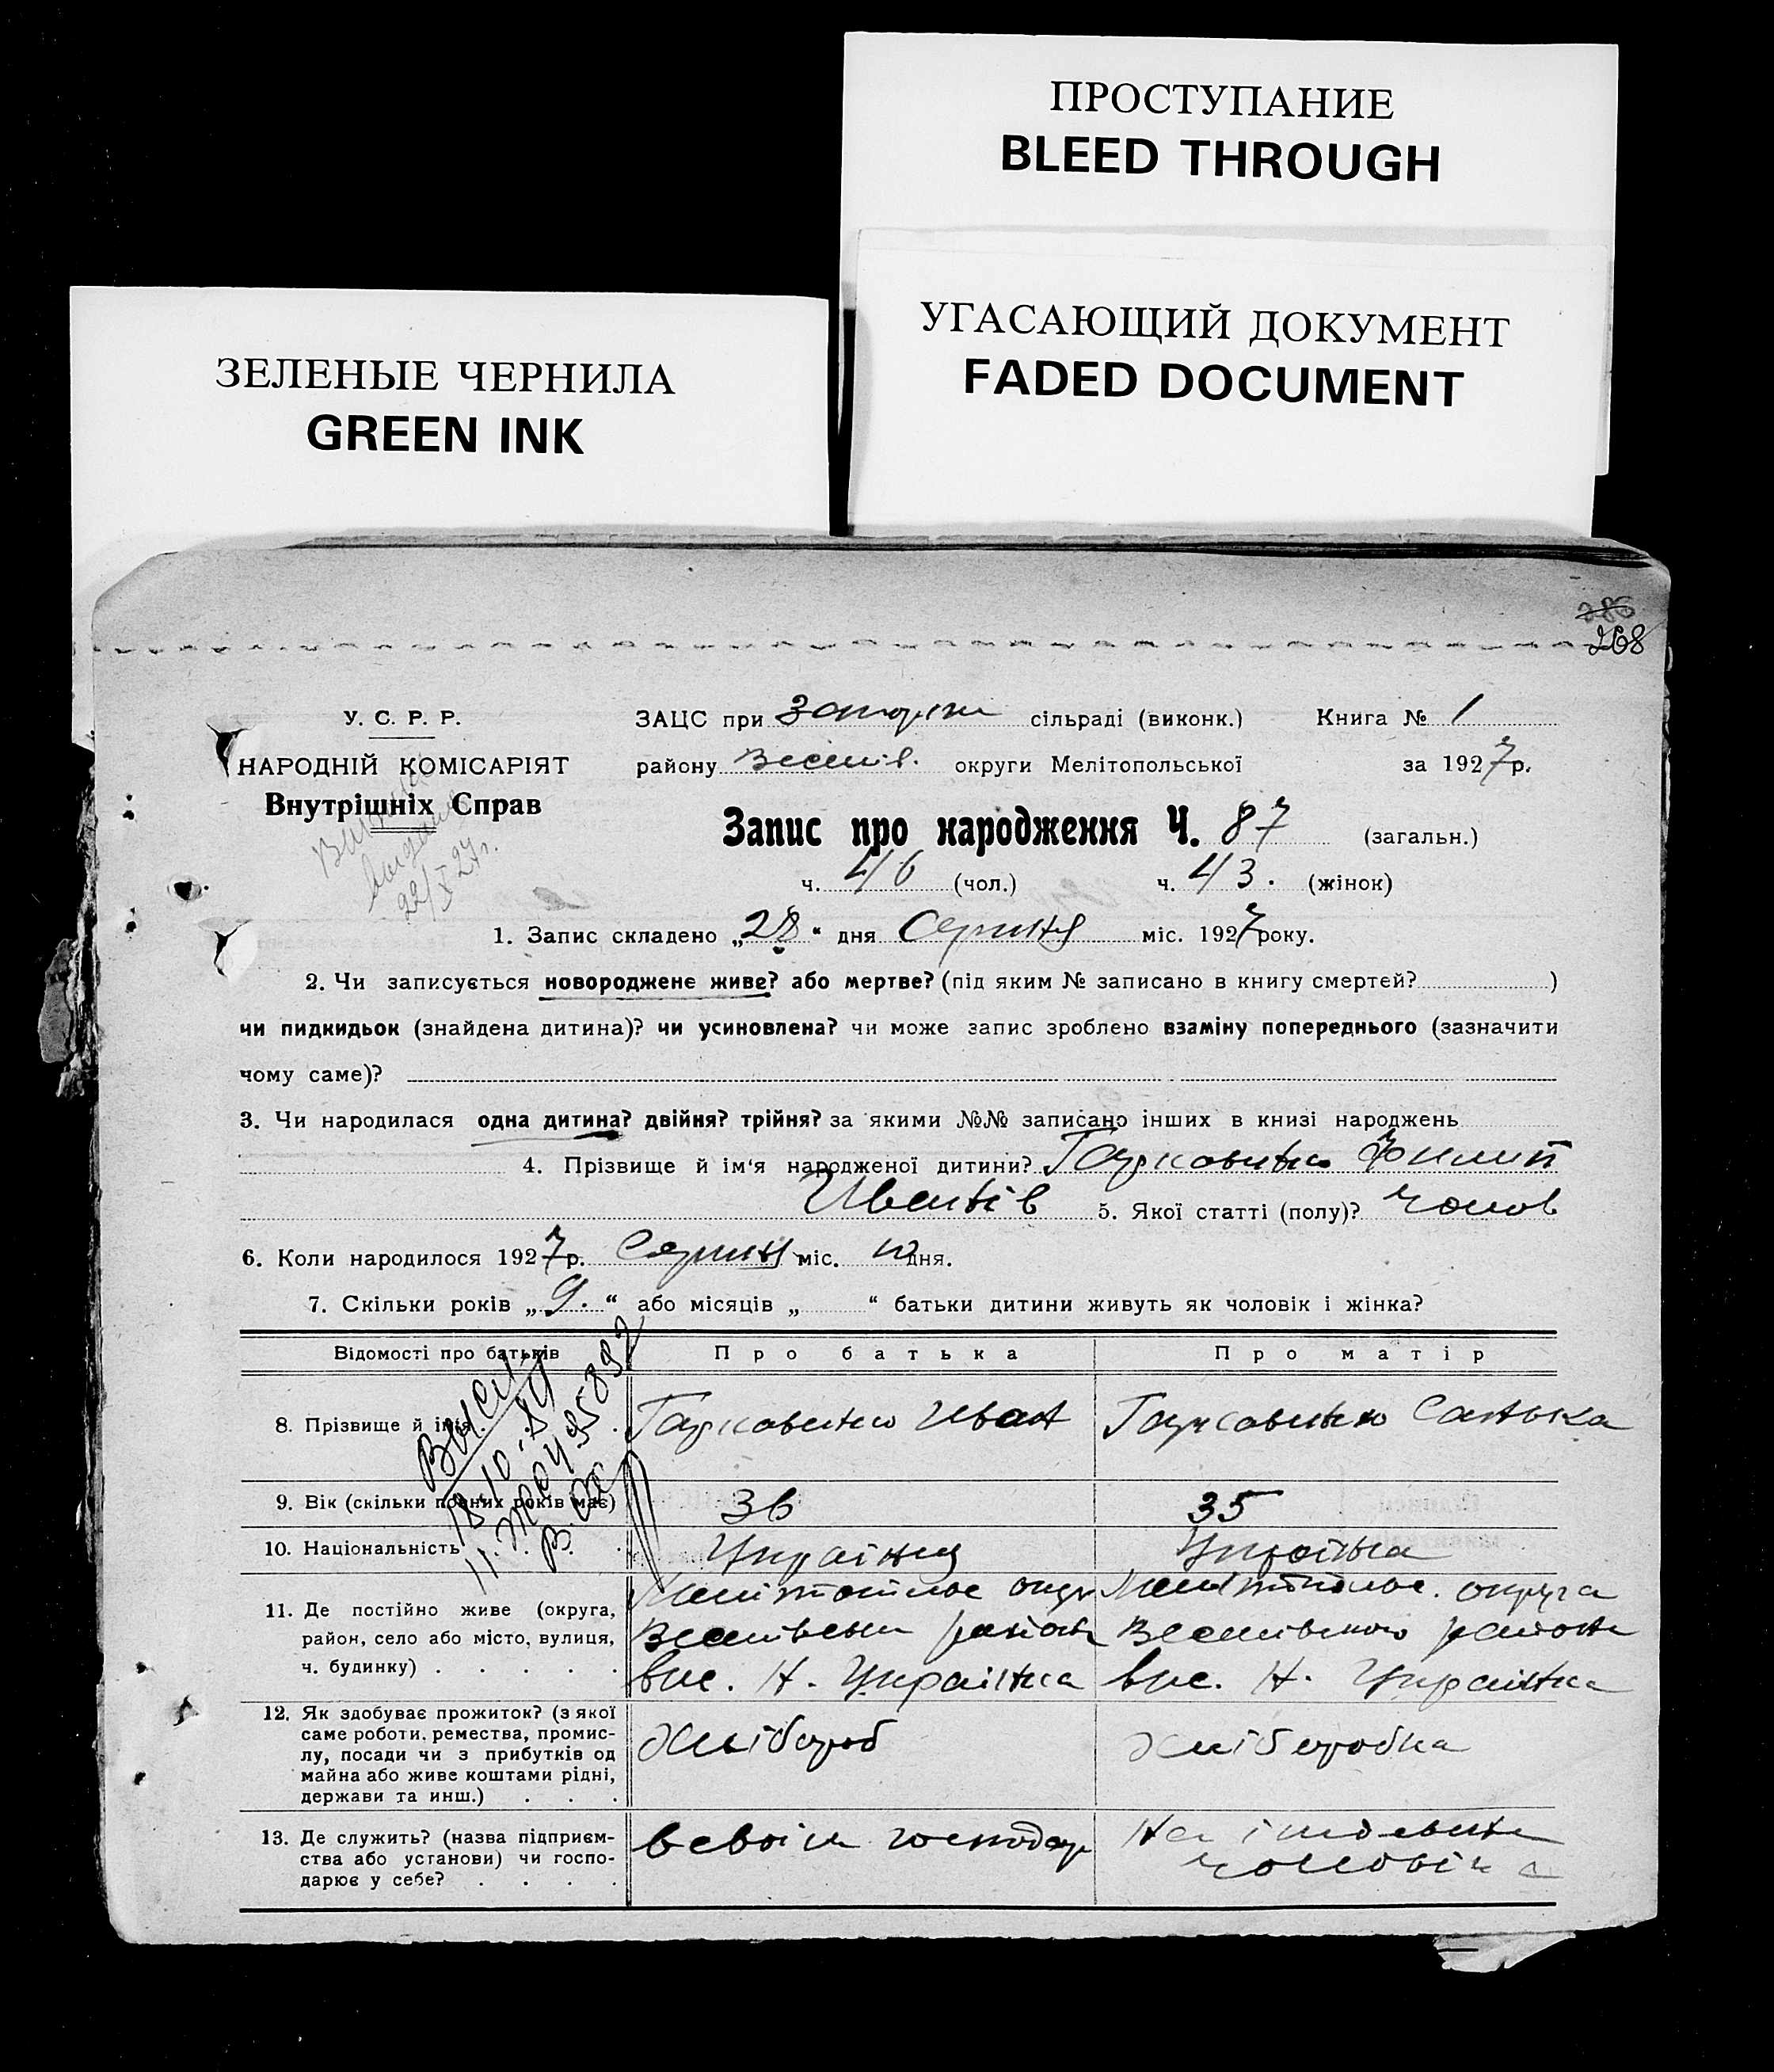 ПРОСТУПАНИЕ
BLEED THROUGH
УГАСАЮЩИЙ ДОКУМЕНТ
FADED DOCUMENT
ЗЕЛЕНЫЕ ЧЕРНИЛА
GREEN INK
286
268
У. С. Р. Р.
НАРОДНІЙ КОМІСАРІЯТ
Внутрішніх Справ
22/X 27 г.
ЗАЦС при сільраді (виконк.) Книга № 1
району Веселів. округи Мелітопольської за 1927р.
Запис про народження Ч. 87 (загальн.)
ч. 46 (чол.) ч. 43. (жінок)
1. Запис складено „28“ дня Серпня міс. 1927 року.
2. Чи записується новороджене живе? або мертве? (під яким № записано в книгу смертей? )
чи пидкидьок (знайдена дитина)? чи усиновлена? чи може запис зроблено взаміну попереднього (зазначити
чому саме)?
3. Чи народилася одна дитина? двійня? трійня? за якими №№ записано інших в книзі народжень
4. Прізвище й ім‘я народженої дитини? Гарковенко Филип
Иванів 5. Якої статті (полу)? Чолов
6. Коли народилося 1927р. Серпня міс. 10 дня.
7. Скільки років „9.“ або місяців „ “ батьки дитини живуть як чоловік і жінка?
Відомості про батьків Про батька Про матір
8. Прізвище й ім'я. Гарковенко Иван Гарковенко Санька
9. Вік (скільки повних років має) 36 35
10. Національність Українец Українка
11. Де постійно живе (округа, район, село або місто, вулиця, ч. будинку)
Мелітопільс округ Мелітопільс. округа
Веселівськ район Веселівського района
вис. Н. Українка вис. Н. Українка
12. Як здобуває прожиток? (з якої
саме роботи. ремества, промис-
лу, посади чи з прибутків од
майна або живе коштами рідні,
держави та инш.)
Хлібороб Хліборобка
13. Де служить? (назва підприєм-
ства або установи) чи госпо-
дарює у себе?
В своім господар На
чоловіка